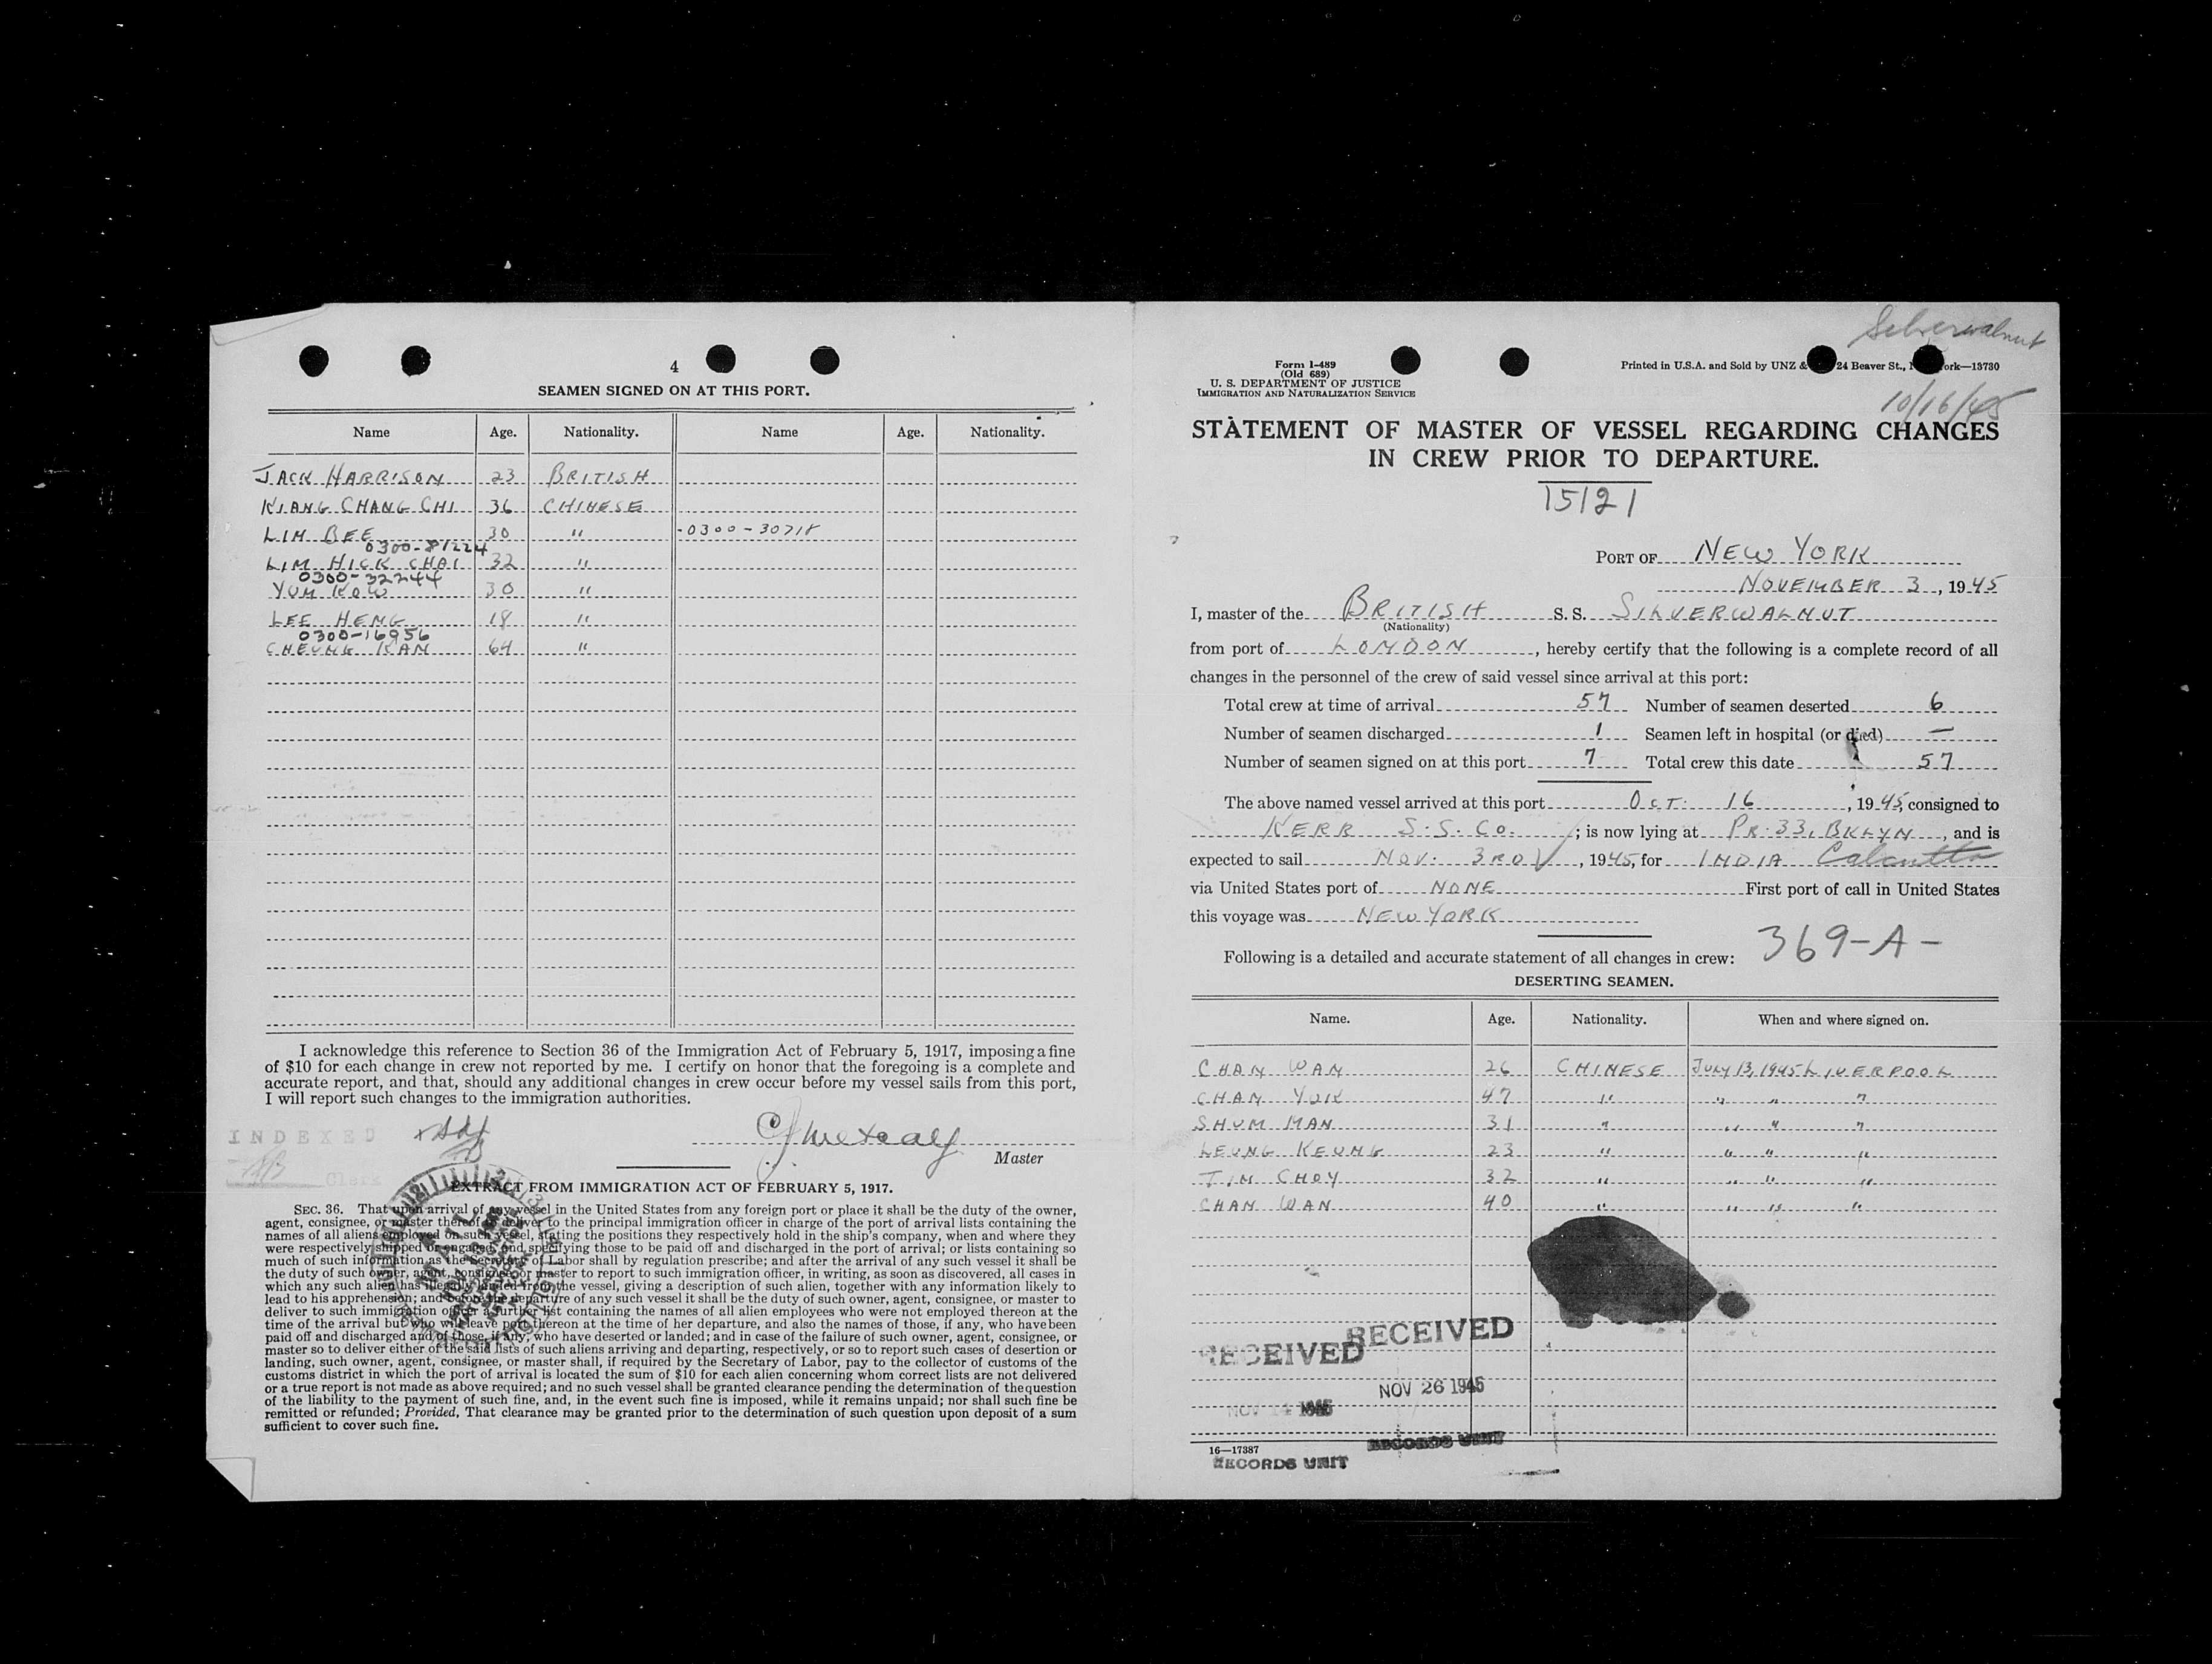 4
SEAMEN SIGNED ON AT THIS PORT.
Name Age. Nationality. Name Age. Nationality.
JACK HARRISON 23 BRITISH
KIANG CHANG CHI 36 CHINESE
LIM BEE 30 " 0300-30718
0300-81224
LIM HICK CHAI 32 "
0300-32244
YUM KOW 30 "
LEE HENG 18 "
0300-16956
CHEUNG KAN 64 "
I acknowledge this reference to Section 36 of the Immigration Act of February 5, 1917, imposing a fine
of $10 for each change in crew not reported by me. I certify on honor that the foregoing is a complete and
accurate report, and that, should any additional changes in crew occur before my vessel sails from this port,
I will report such changes to the immigration authorities.
INDEXED
Metcalf
Master
Clerk
EXTRACT FROM IMMIGRATION ACT OF FEBRUARY 5, 1917.
SEC. 36. That upon arrival of any vessel in the United States from any foreign port or place it shall be the duty of the owner,
agent, consignee, or master thereof to deliver to the principal immigration officer in charge of the port of arrival lists containing the
names of all aliens employed on such vessel, stating the positions they respectively hold in the ship's company, when and where they
were respectively shipped or engaged, and specifying those to be paid off and discharged in the port of arrival; or lists containing so
much of such information as the Secretary of Labor shall by regulation prescribe; and after the arrival of any such vessel it shall be
the duty of such owner, agent, consignee, or master to report to such immigration officer, in writing, as soon as discovered, all cases in
which any such alien has illegally landed from the vessel, giving a description of such alien, together with any information likely to
lead to his apprehension; and before the departure of any such vessel it shall be the duty of such owner, agent, consignee, or master to
deliver to such immigration officer a further list containing the names of all alien employees who were not employed thereon at the
time of the arrival but who will leave port thereon at the time of her departure, and also the names of those, if any, who have been
paid off and discharged and of those, if any, who have deserted or landed; and in case of the failure of such owner, agent, consignee, or
master so to deliver either of the said lists of such aliens arriving and departing, respectively, or so to report such cases of desertion or
landing, such owner, agent, consignee, or master shall, if required by the Secretary of Labor, pay to the collector of customs of the
customs district in which the port of arrival is located the sum of $10 for each alien concerning whom correct lists are not delivered
or a true report is not made as above required; and no such vessel shall be granted clearance pending the determination of the question
of the liability to the payment of such fine, and, in the event such fine is imposed, while it remains unpaid; nor shall such fine be
remitted or refunded; Provided, That clearance may be granted prior to the determination of such question upon deposit of a sum
sufficient to cover such fine.
Silverwalnut
Form I-489
(Old 689)
U. S. DEPARTMENT OF JUSTICE
IMMIGRATION AND NATURALIZATION SERVICE
Printed in U.S.A. and Sold by UNZ & 24 Beaver St., ork—13730
10/16/45
STATEMENT OF MASTER OF VESSEL REGARDING CHANGES
IN CREW PRIOR TO DEPARTURE.
15121
PORT OF NEW YORK
NOVEMBER 3, 1945
I, master of the BRITISH S. S. SILVERWALNUT
(Nationality)
from port of LONDON, hereby certify that the following is a complete record of all
changes in the personnel of the crew of said vessel since arrival at this port:
Total crew at time of arrival 57 Number of seamen deserted 6
Number of seamen discharged 1 Seamen left in hospital (or died) —
Number of seamen signed on at this port 7 Total crew this date 57
The above named vessel arrived at this port OCT. 16, 1945, consigned to
KERR S.S. CO.; is now lying at PR. 33, BKLYN, and is
expected to sail NOV. 3RD, 1945, for INDIA Calcutta
via United States port of NONE First port of call in United States
this voyage was NEW YORK
Following is a detailed and accurate statement of all changes in crew: 369-A-
DESERTING SEAMEN.
Name. Age. Nationality. When and where signed on.
CHAN WAN 26 CHINESE JULY 13, 1945 LIVERPOOL
CHAN YOIK 47 " " " "
SHUM MAN 31 " " " "
LEUNG KEUNG 23 " " " "
TIM CHOY 32 " " " "
CHAN WAN 40 " " " "
RECEIVED
RECEIVED
NOV 26 1945
NOV 14 1945
RECORDS UNIT
16—17387
RECORDS UNIT